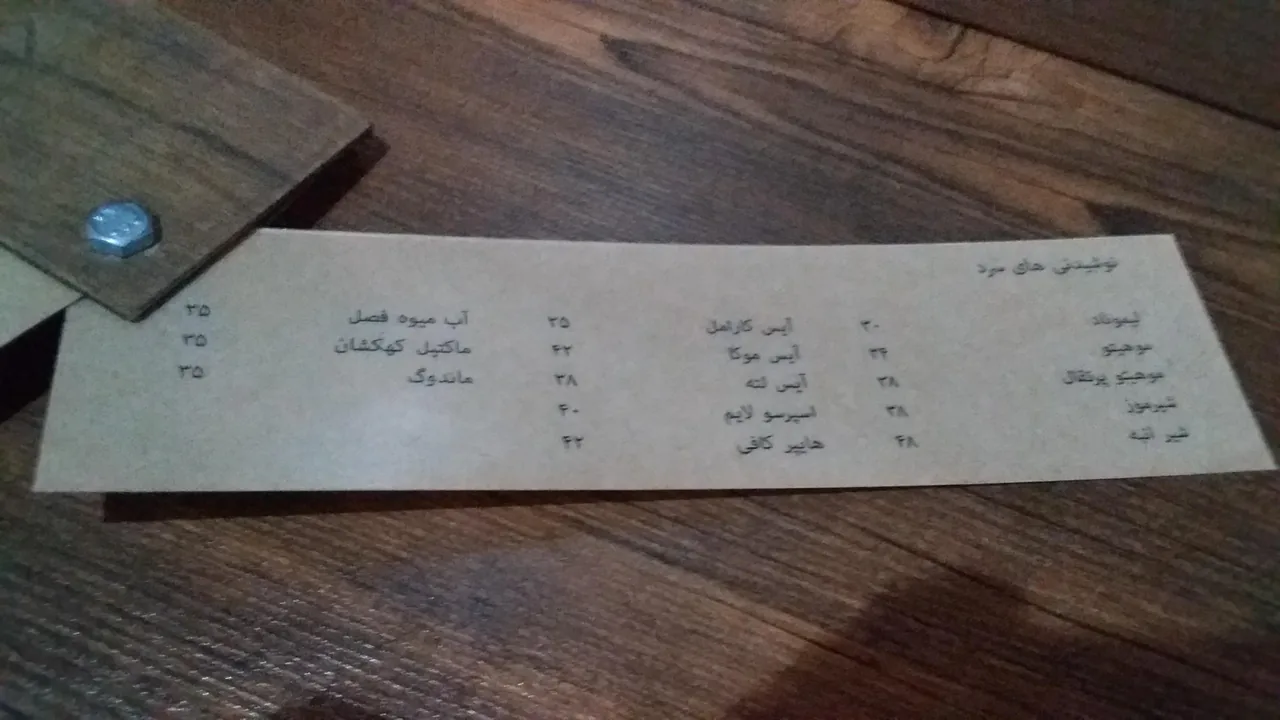 نوشیدنی های سرد
لیموناد ۳۰ آیس کارامل ۳۵ آب میوه فصل ۳۵
موهیتو ۳۴ آیس موکا ۴۲ ماکتیل کهکشان ۳۵
موهیتو پرتقال ۳۸ آیس لته ۳۸ ماندوگ ۳۵
شیرموز ۳۸ اسپرسو لایم ۴۰
شیر انبه ۴۸ هایپر کافی ۴۲